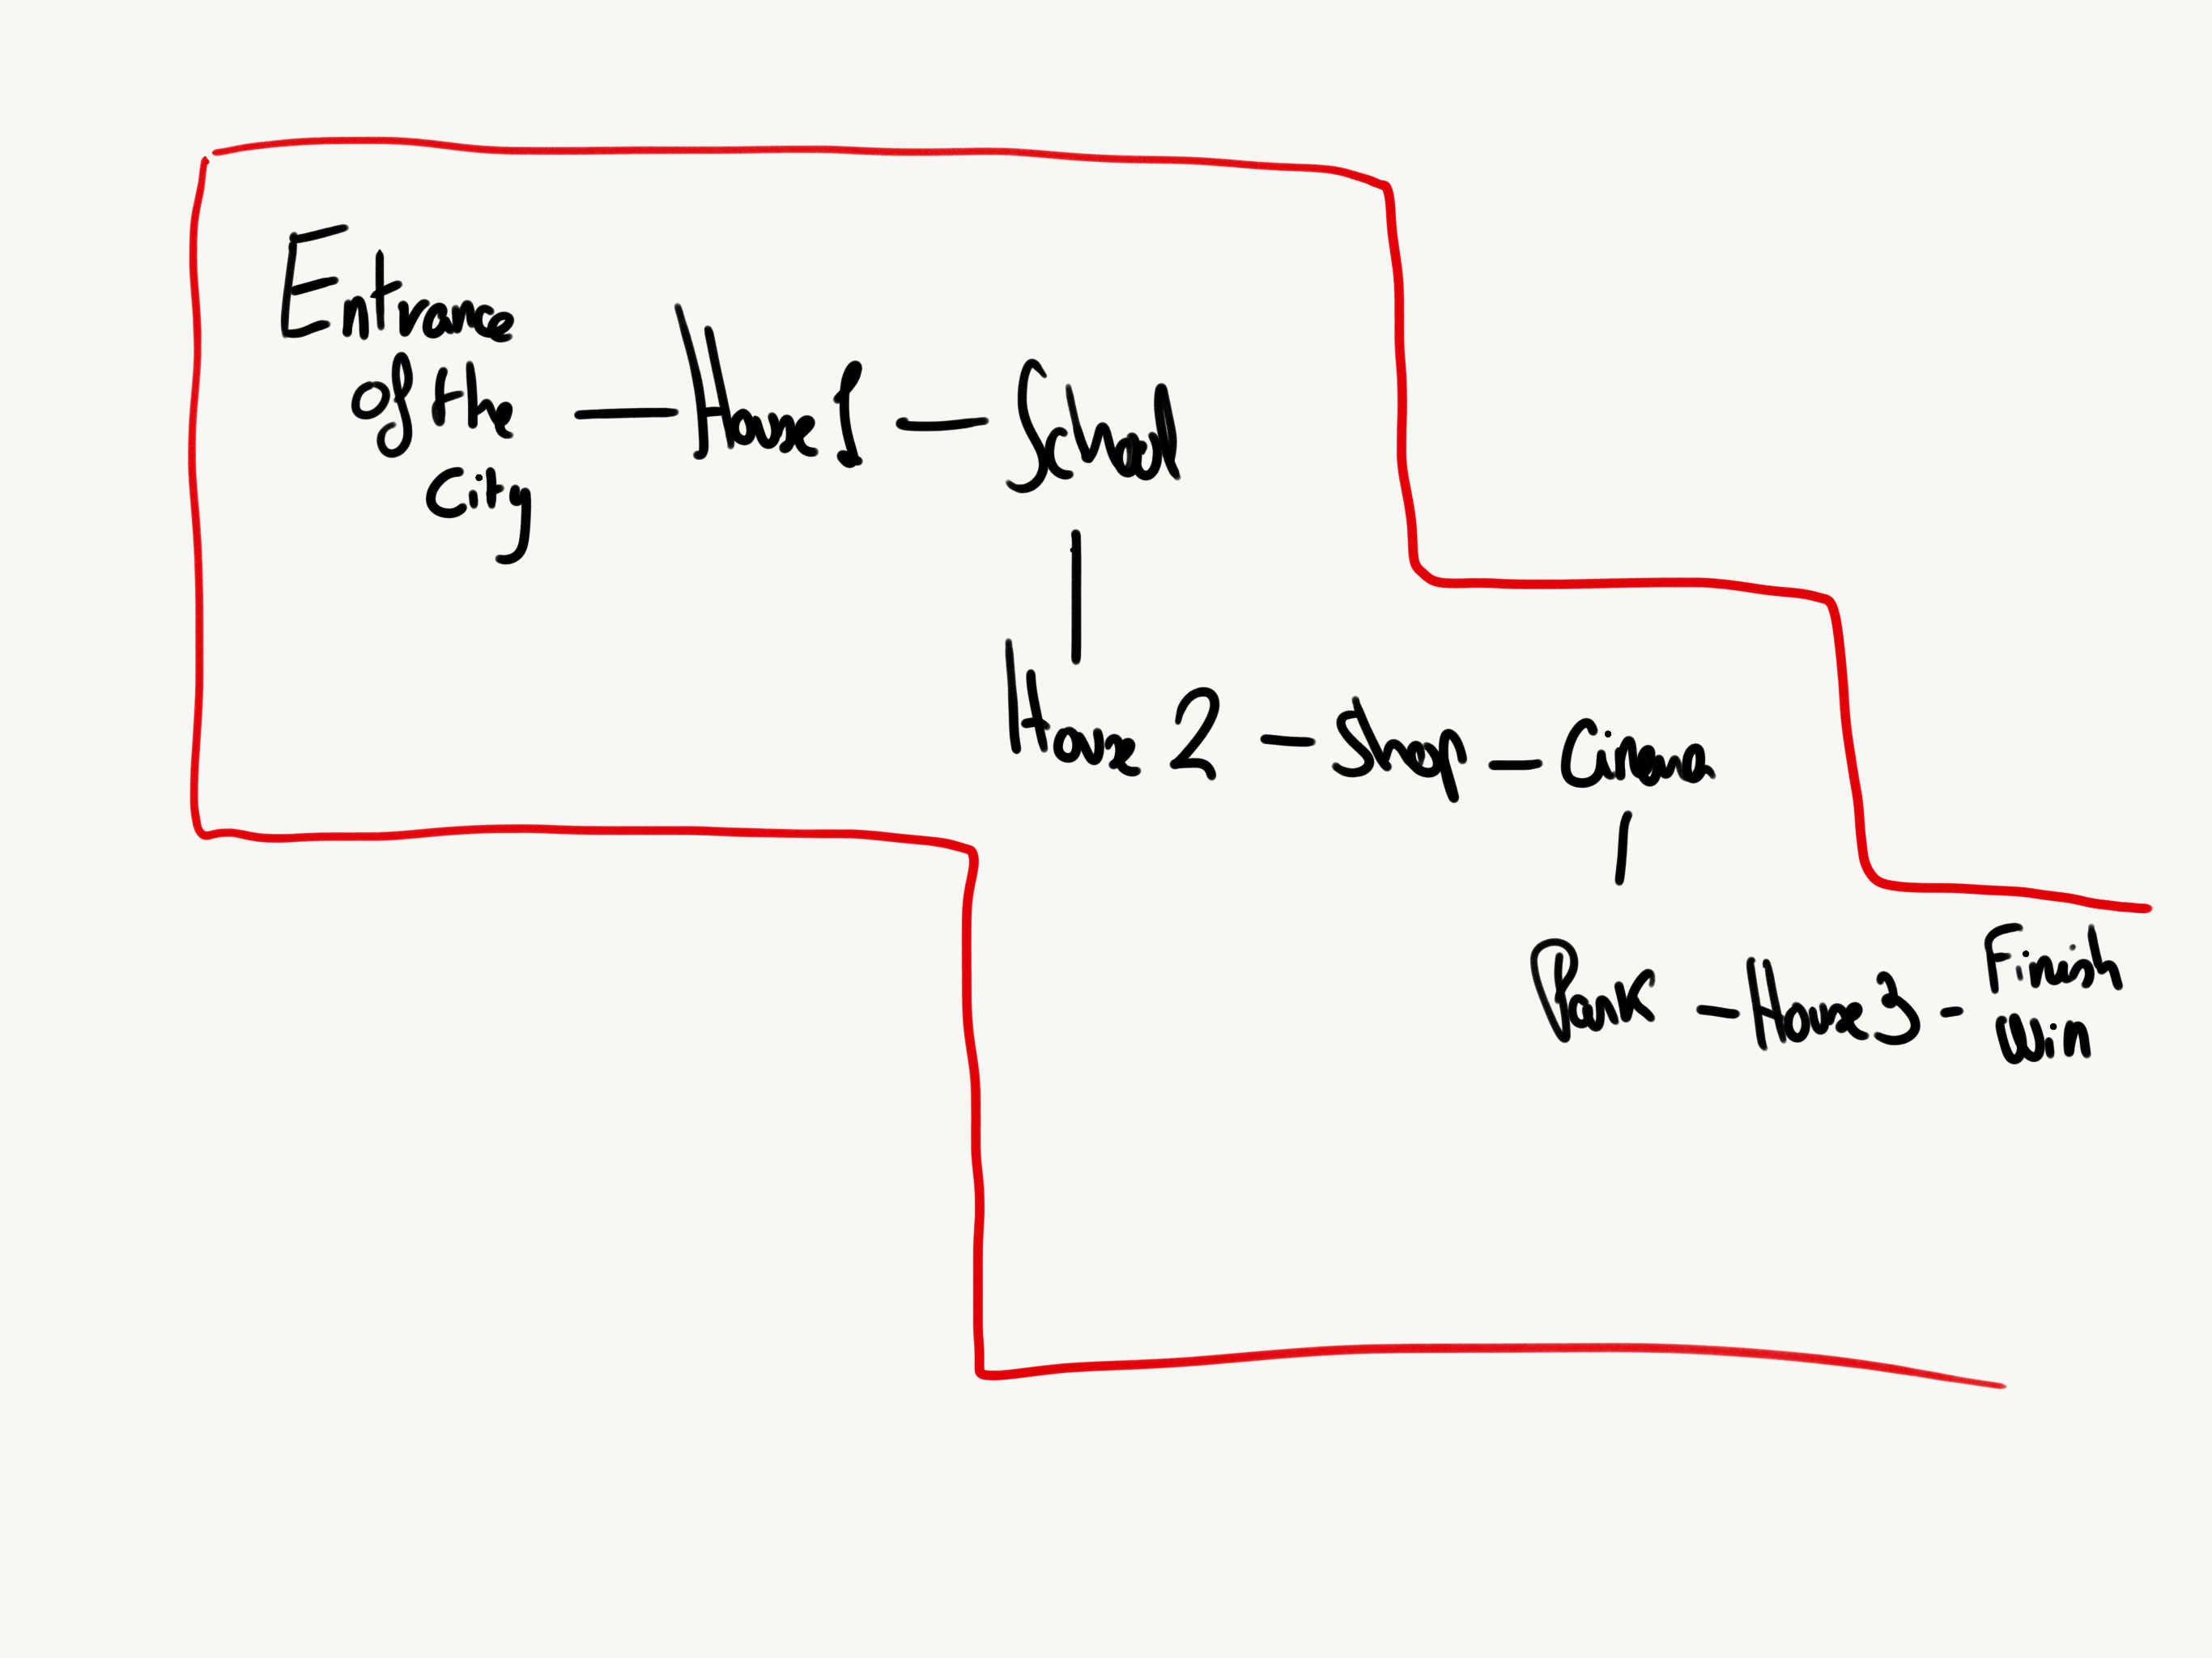 Entrance
of the
City
House 1
School
House 2
Shop
Cinema
Park
House 3
Finish
Win